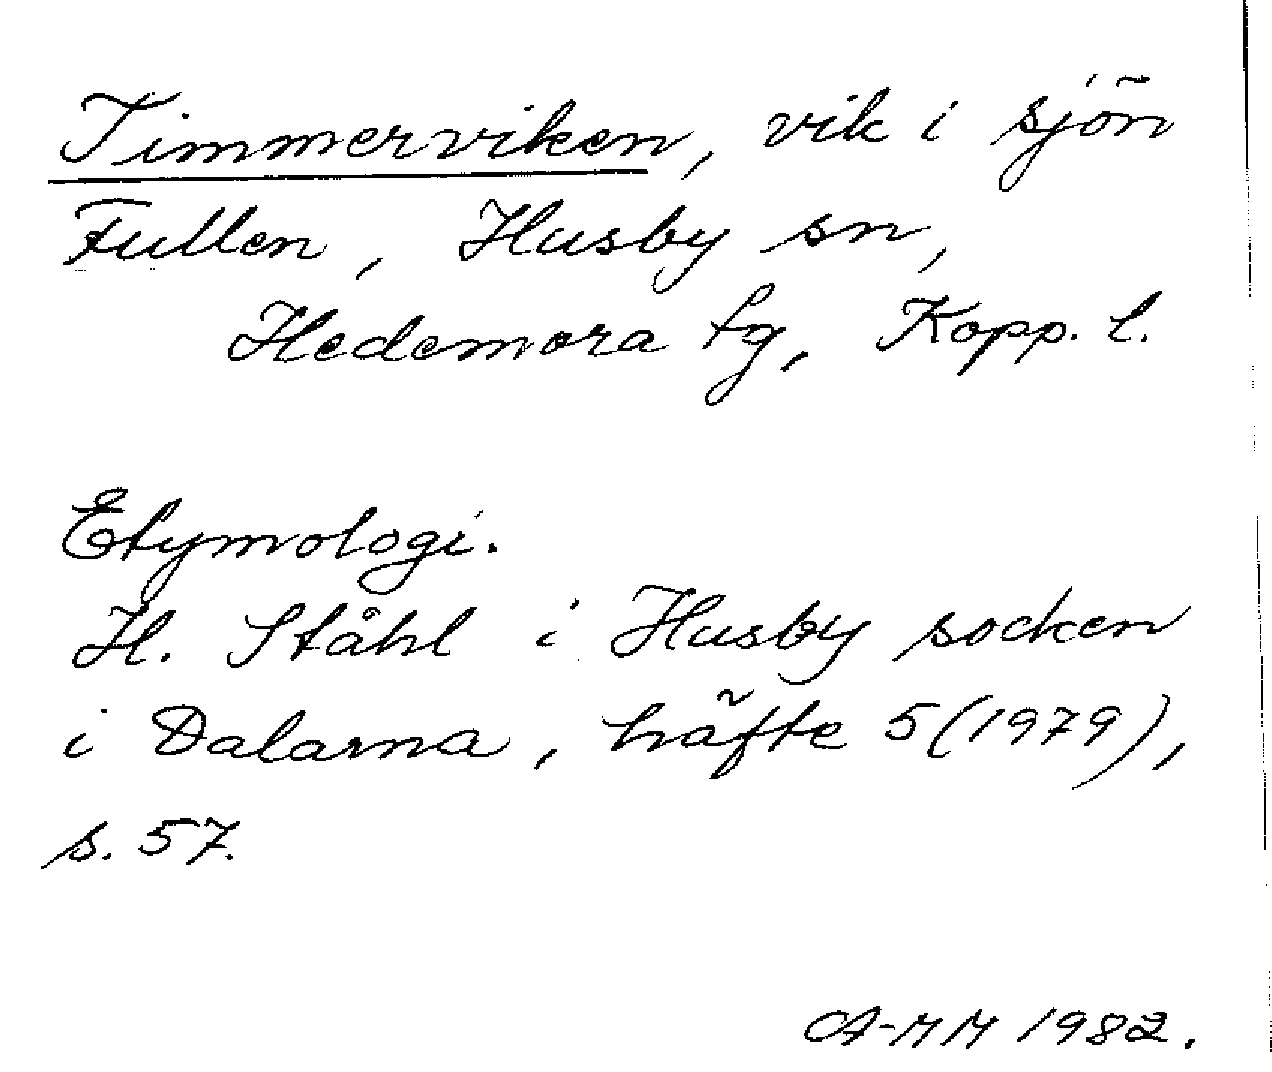 Timmerviken, vik i sjön
Fullen, Husby sn,
Hedemora tg, Kopp. l.
Etymologi.
H. Ståhl i Husby socken
i Dalarna, häfte 5 (1979),
s. 57.
A-MM 1982.